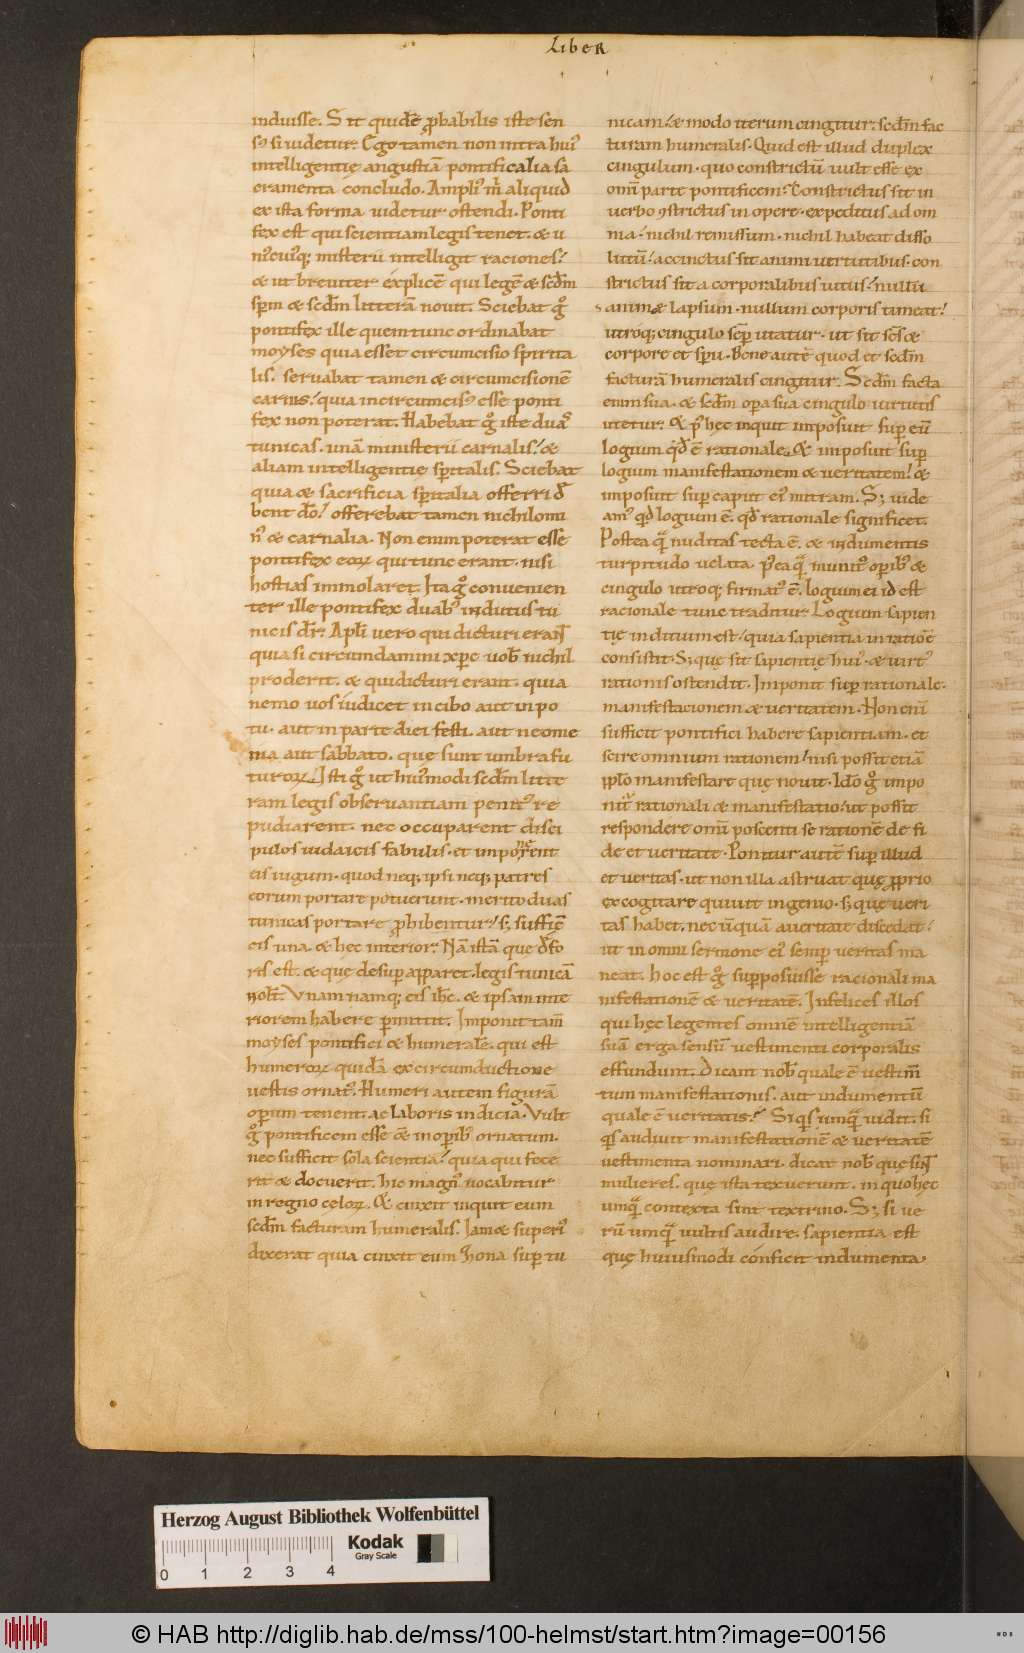 LIBER
induisse. Sit quidē ꝓbabilis iste sen
sꝰ si uidetur. Ego tamen non intra huiꝰ
intelligentię angustiā pontificalia sa
cramenta concludo. Ampliꝰ m̄ aliquid
ex ista forma uidetur ostendi. Ponti
fex est qui scientiam legis tenet. & u
niꝰcuiꝰq; misterii intelligit raciones.
& ut breuiter explicē qui legē & scd̄m
sp̄m & scd̄m litterā nouit. Sciebat gͦ
pontifex ille quem tunc ordinabat
moyses quia esset circumcisio spirita
lis. seruabat tamen & circumcisionē
carnis. quia incircumcisꝰ esse ponti
fex non poterat. Habebat gͦ iste duas
tunicas. unā ministerii carnalis. &
aliam intelligentię sp̄italis. Sciebat
quia & sacrificia sp̄italia offerri de
bent dō. offerebat tamen nichilomi
nꝰ & carnalia. Non enim poterat esse
pontifex eoꝝ qui tunc erant. nisi
hostias immolaret. Ita gͦ conuenien
ter ille pontifex duabꝰ indutus tu
nicis dr̄. Apl̄i uero qui dicturi erant
quia si circumdamini xp̄c uob̄ nichil
proderit. & qui dicturi erant. quia
nemo uos iudicet in cibo aut in po
tu. aut in parte diei festi. aut neome
nia aut sabbato. quę sunt umbra fu
turoꝝ. Isti gͦ ut huiꝰmodi scd̄m litte
ram legis obseruantiam penitꝰ re
pudiarent. nec occuparent disci
pulos iudaicis fabulis. et imponerent
eis iugum. quod neq; ipsi neq; patres
eorum portare potuerunt. merito duas
tunicas portare ꝓhibentur. s; sufficē
eis una & hec interior. Nā istā que de fo
ris est. & quę desup apparet. legis tunicā
nolt̄. Vnam namq; eis ih̄c. & ipsam inte
riorem habere ꝑmittit. Imponit tam̄
moyses pontifici & humeralē. qui est
humeroꝝ quidā ex circumductione
uestis ornatꝰ. Humeri autem figurā
oꝑum tenent. ac laboris indicia. Vult
gͦ pontificem esse & in oꝑibꝰ ornatum.
nec sufficit sola scientia. quia qui fece
rit & docuerit. hic magnꝰ uocabitur
in regno cęloꝝ. & cinxit inquit eum
scd̄m facturam humeralis. Iam & superiꝰ
dixerat quia cinxit eum zona suꝑ tu
nicam. & modo iterum cingitur. scd̄m fac
turam humeralis. Quid est illud duplex
cingulum. quo constrictū uult esse ex
omī parte pontificem? Constrictus sit in
uerbo ꝯstrictus in opere. expeditus ad om
nia. nichil remissum. nichil habeat disso
lutū. accinctus sit animi uirtutibus. con
strictus sit a corporalibus uitiis. nullū
animæ lapsum. nullum corporis timeat.
utroq; cingulo semꝑ utatur. ut sit sc̄s &
corpore et sp̄u. Bene autē quod et scd̄m
facturā humeralis cingitur. Scd̄m facta
enim sua. & scd̄m oꝑa sua cingulo uirtutis
utetur. & p̄ hęc inquit imposuit suꝑ eū
logium qd̄ ē rationale. & imposuit suꝑ
logium manifestationem & ueritatem. &
imposuit suꝑ caput eiꝰ mitram. S; uide
amꝰ qd̄ logium ē. qd̄ rationale significet.
Postea quā nuditas tecta ē. & indumentis
turpitudo uelata. p̄ea quā munitꝰ oꝑibꝰ &
cingulo utroq; firmatꝰ ē. logium ei id est
racionale tunc traditur. Logium sapien
tię inditum est. quia sapientia in ratiōe
consistit. S; quę sit sapientię huiꝰ & uirtꝰ
rationis ostendit. Imponit suꝑ rationale.
manifestacionem & ueritatem. Non enī
sufficit pontifici habere sapientiam. et
scire omnium rationem. nisi possit etiā
ip̄lo manifestare quę nouit. Idō gͦ impo
nitur rationali & manifestatio. ut possit
respondere omī poscenti se rationē de fi
de et ueritate. Ponitur autē suꝑ illud
et ueritas. ut non illa astruat quę ꝓprio
excogitare quiuit ingenio. s; quę ueri
tas habet. nec ūquā a ueritate discedat.
ut in omni sermone eiꝰ semꝑ ueritas ma
neat. hoc est gͦ supposuisse racionali ma
nifestationē & ueritatē. Infelices illos
qui hęc legentes omnē intelligentiā
suā erga sensū uestimenti corporalis
effundunt. Dicant nob̄ quale ē uestim̄
tum manifestationis. aut indumentū
quale ē ueritatis. Si qͥs umquā uidit. si
qͥs audiuit manifestationē & ueritatē
uestimenta nominari. dicat nob̄ quę sint
mulieres. quę ista texuerunt. in quo hęc
umquā contexta sint textrino. S; si ue
rū umquā uultis audire. sapientia est
quę huiusmodi conficit indumenta.
Herzog August Bibliothek Wolfenbüttel
Kodak
Gray Scale
0 1 2 3 4
© HAB http://diglib.hab.de/mss/100-helmst/start.htm?image=00156